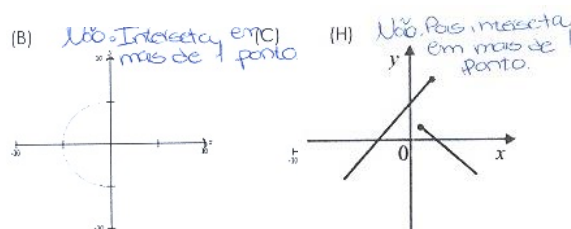 (B) Não. Intersecta em (C)
mais de 1 ponto
10
-10
10
-10
(H) Não. Pois, interseta
em mais de 1
ponto.
y
0
x
-10